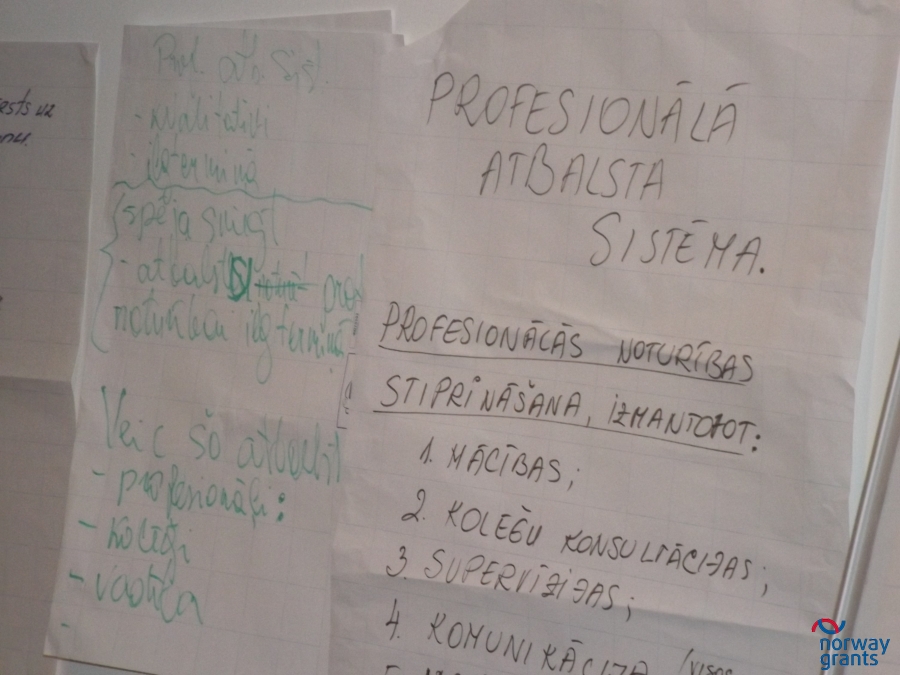 ests uz
Prof. atb. sist.
- kvalitatīvi
- ilgtermiņā
spēja sniegt
- atbalstu prof
noturībai ilgtermiņā.
Veic šo atbalstu
- profesionāļi:
- Kolēģi
- vadītāja
PROFESIONĀLĀ
ATBALSTA
SISTĒMA.
PROFESIONĀLĀS NOTURĪBAS
STIPRINĀŠANA, IZMANTOJOT:
1. MĀCĪBAS;
2. KOLĒĢU KONSULTĀCIJAS;
3. SUPERVĪZIJAS;
4. KOMUNIKĀCIJA /visos
norway
grants